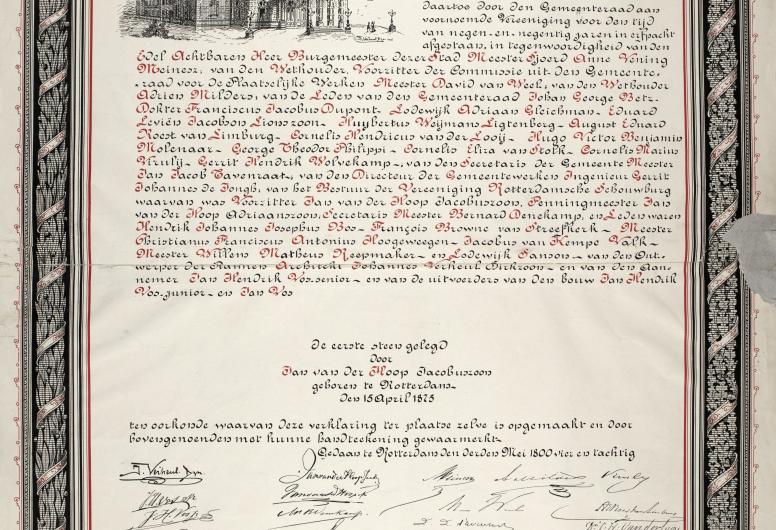 daartoe door den Gemeenteraad aan
voornoemde Vereeniging voor den tijd
van negen-en-negentig jaren in erfpacht
afgestaan, in tegenwoordigheid van den
Edel Achtbaren Heer Burgemeester dezer Stad Meester Sjoerd Anne Vening
Meinesz, van den Wethouder, Voorzitter der Commissie uit den Gemeente-
raad voor de Plaatselijke Werken Meester David van Weel, van den Wethouder
Adrien Milders, van de Leden van den Gemeenteraad Johan George Betz-
Dokter Franciscus Jacobus Dupont. Lodewijk Adriaan Gleichman. Eduard
Leviën Jacobson Lionszoon. Huybertus Weijman Ligtenberg. August Eduard
Roest van Limburg. Cornelis Hendricus van der Looij. Hugo Victor Benjamin
Molenaar. George Theodor Philippi. Cornelis Eliza van Stolk. Cornelis Marius
Viruly. Gerrit Hendrik Wolvekamp, van den Secretaris der Gemeente Meester
Jan Jacob Tavenraat, van den Directeur der Gemeentewerken Ingenieur Gerrit
Johannes de Jongh, van het Bestuur der Vereeniging Rotterdamsche Schouwburg
waarvan was Voorzitter Jan van der Hoop Jacobuszoon, Penningmeester Jan
van der Hoop Adriaanszoon, Secretaris Meester Bernard Denekamp, en Leden waren
Hendrik Johannes Josephus Bos. François Browne van Streefkerk. Meester
Christianus Franciscus Antonius Hoogeweegen. Jacobus van Kempe Valk.
Meester Willem Matheus Reepmaker en Lodewijk Sanson. van den Ont-
werper der Plannen Architect Johannes Verheul Dirkzoon. en van den Aan-
nemer Jan Hendrik Vos senior. en van de uitvoerders van den bouw Jan Hendrik
Vos junior. en Jan Vos
De eerste steen gelegd
door
Jan van der Hoop Jacobuszoon
geboren te Rotterdam
den 15 April 1825
ten oorkonde waarvan deze verklaring ter plaatse zelve is opgemaakt en door
bovengenoemden met hunne handteekening gewaarmerkt.
Gedaan te Rotterdam den derden Mei 1800 vier en tachtig
J. Verheul Dzn.